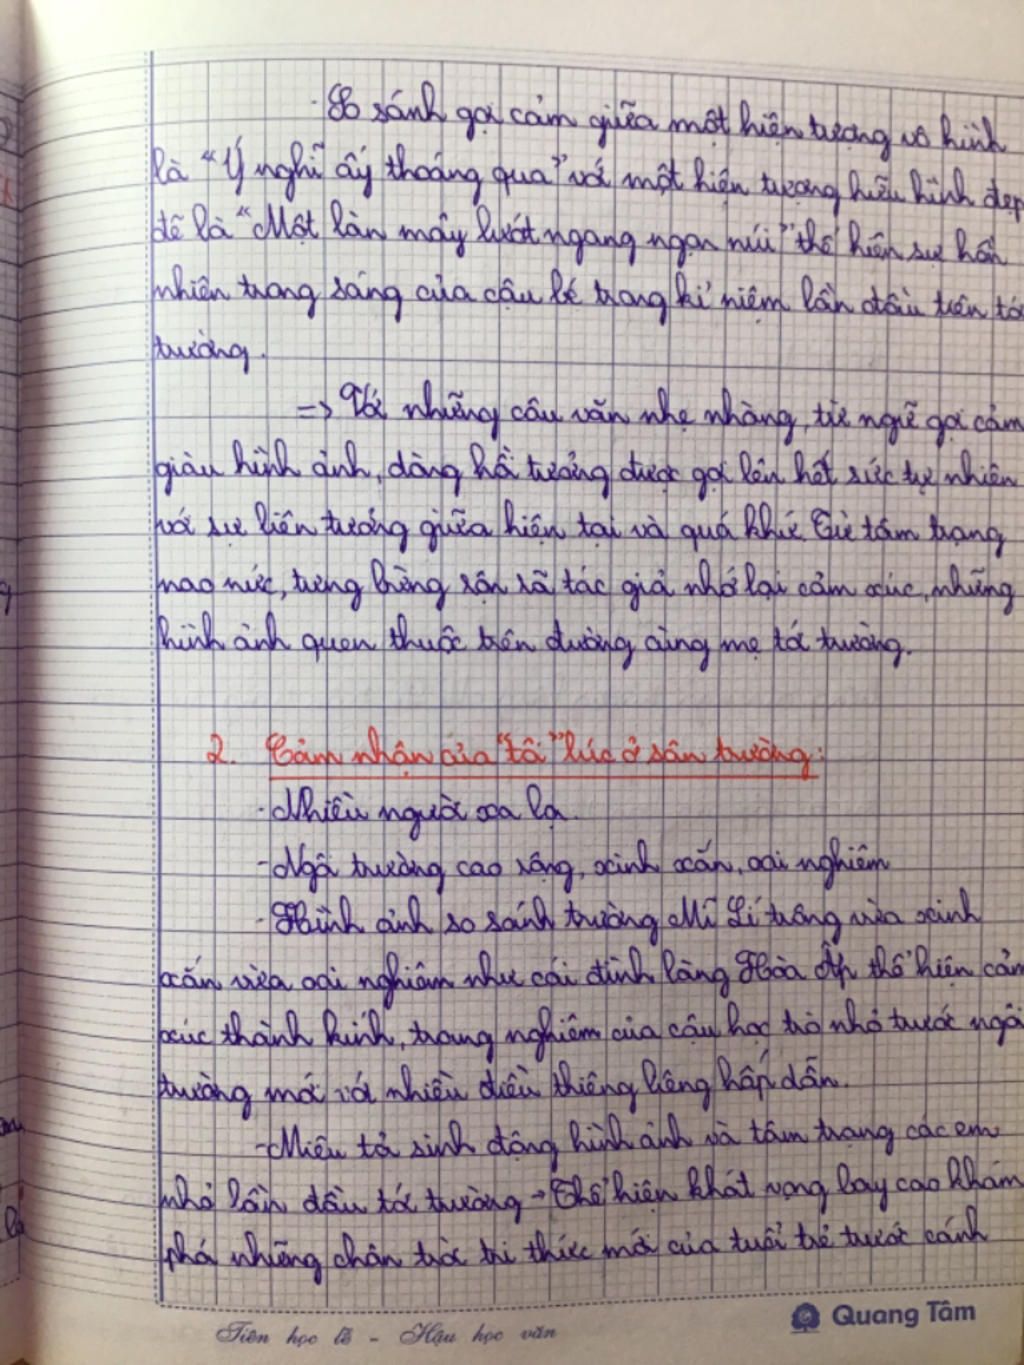 - So sánh gợi cảm giữa một hiện tượng vô hình
là "Ý nghĩ ấy thoáng qua" với một hiện tượng hữu hình đẹp
đẽ là "Một làn mây lướt ngang ngọn núi" thể hiện sự hồn
nhiên trong sáng của cậu bé trong kỉ niệm lần đầu tiên tới
trường.
=> Với những câu văn nhẹ nhàng, từ ngữ gợi cảm
giàu hình ảnh, dòng hồi tưởng được gợi lên hết sức tự nhiên
với sự liên tưởng giữa hiện tại và quá khứ. Từ tâm trạng
nao nức, tưng bừng rộn rã tác giả nhớ lại cảm xúc, những
hình ảnh quen thuộc trên đường cùng mẹ tới trường.
2. Cảm nhận của "tôi" lúc ở sân trường:
- Nhiều người xa lạ.
- Ngôi trường cao rộng, xinh xắn, oai nghiêm
- Hình ảnh so sánh trường Mĩ Lí trông vừa xinh
xắn vừa oai nghiêm như cái đình làng Hòa Ấp thể hiện cảm
xúc thành kính, trang nghiêm của cậu học trò nhỏ trước ngôi
trường mới với nhiều điều thiêng liêng hấp dẫn.
- Miêu tả sinh động hình ảnh và tâm trạng các em
nhỏ lần đầu tới trường → Thể hiện khát vọng bay cao khám
phá những chân trời tri thức mới của tuổi trẻ trước cánh
Tiên học lễ - Hậu học văn
Quang Tâm